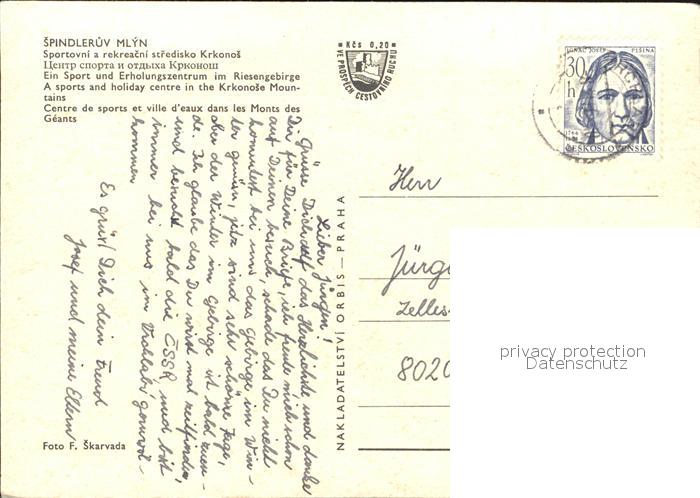 ŠPINDLERŮV MLÝN
Sportovní a rekreační středisko Krkonoš
Центр спорта и отдыха Крконош
Ein Sport und Erholungszentrum im Riesengebirge
A sports and holiday centre in the Krkonoše Moun-
tains
Centre de sports et ville d'eaux dans les Monts des
Géants
Kčs 0,20
VE PROSPĚCH CESTOVNÍHO RUCHU
IGNÁC JOSEF PEŠINA
30
h
1766
ČESKOSLOVENSKO
Lieber Jürgen!
Grüsse Dich auf das Herzlichste und danke
Dir für Deine Briefe, ich freute mich schon
auf Deinen besuch, schade das Du nicht
kommst bei uns das gebirge im Win-
ter grüsen, jitz sind sehr schöne Tage,
aber der Winter im Gebirge ist bald zuen-
de. Ich glaube das Du wirst mal zeitfinden,
und besucht bald die ČSSR und bist
immer bei uns im Vrchlabí gerwol-
kommen
Es grüst Dich dein Freund
Josef und meine Eltern
NAKLADATELSTVÍ ORBIS — PRAHA
Herr
Jürg
Zelles
8020
privacy protection
Datenschutz
Foto F. Škarvada